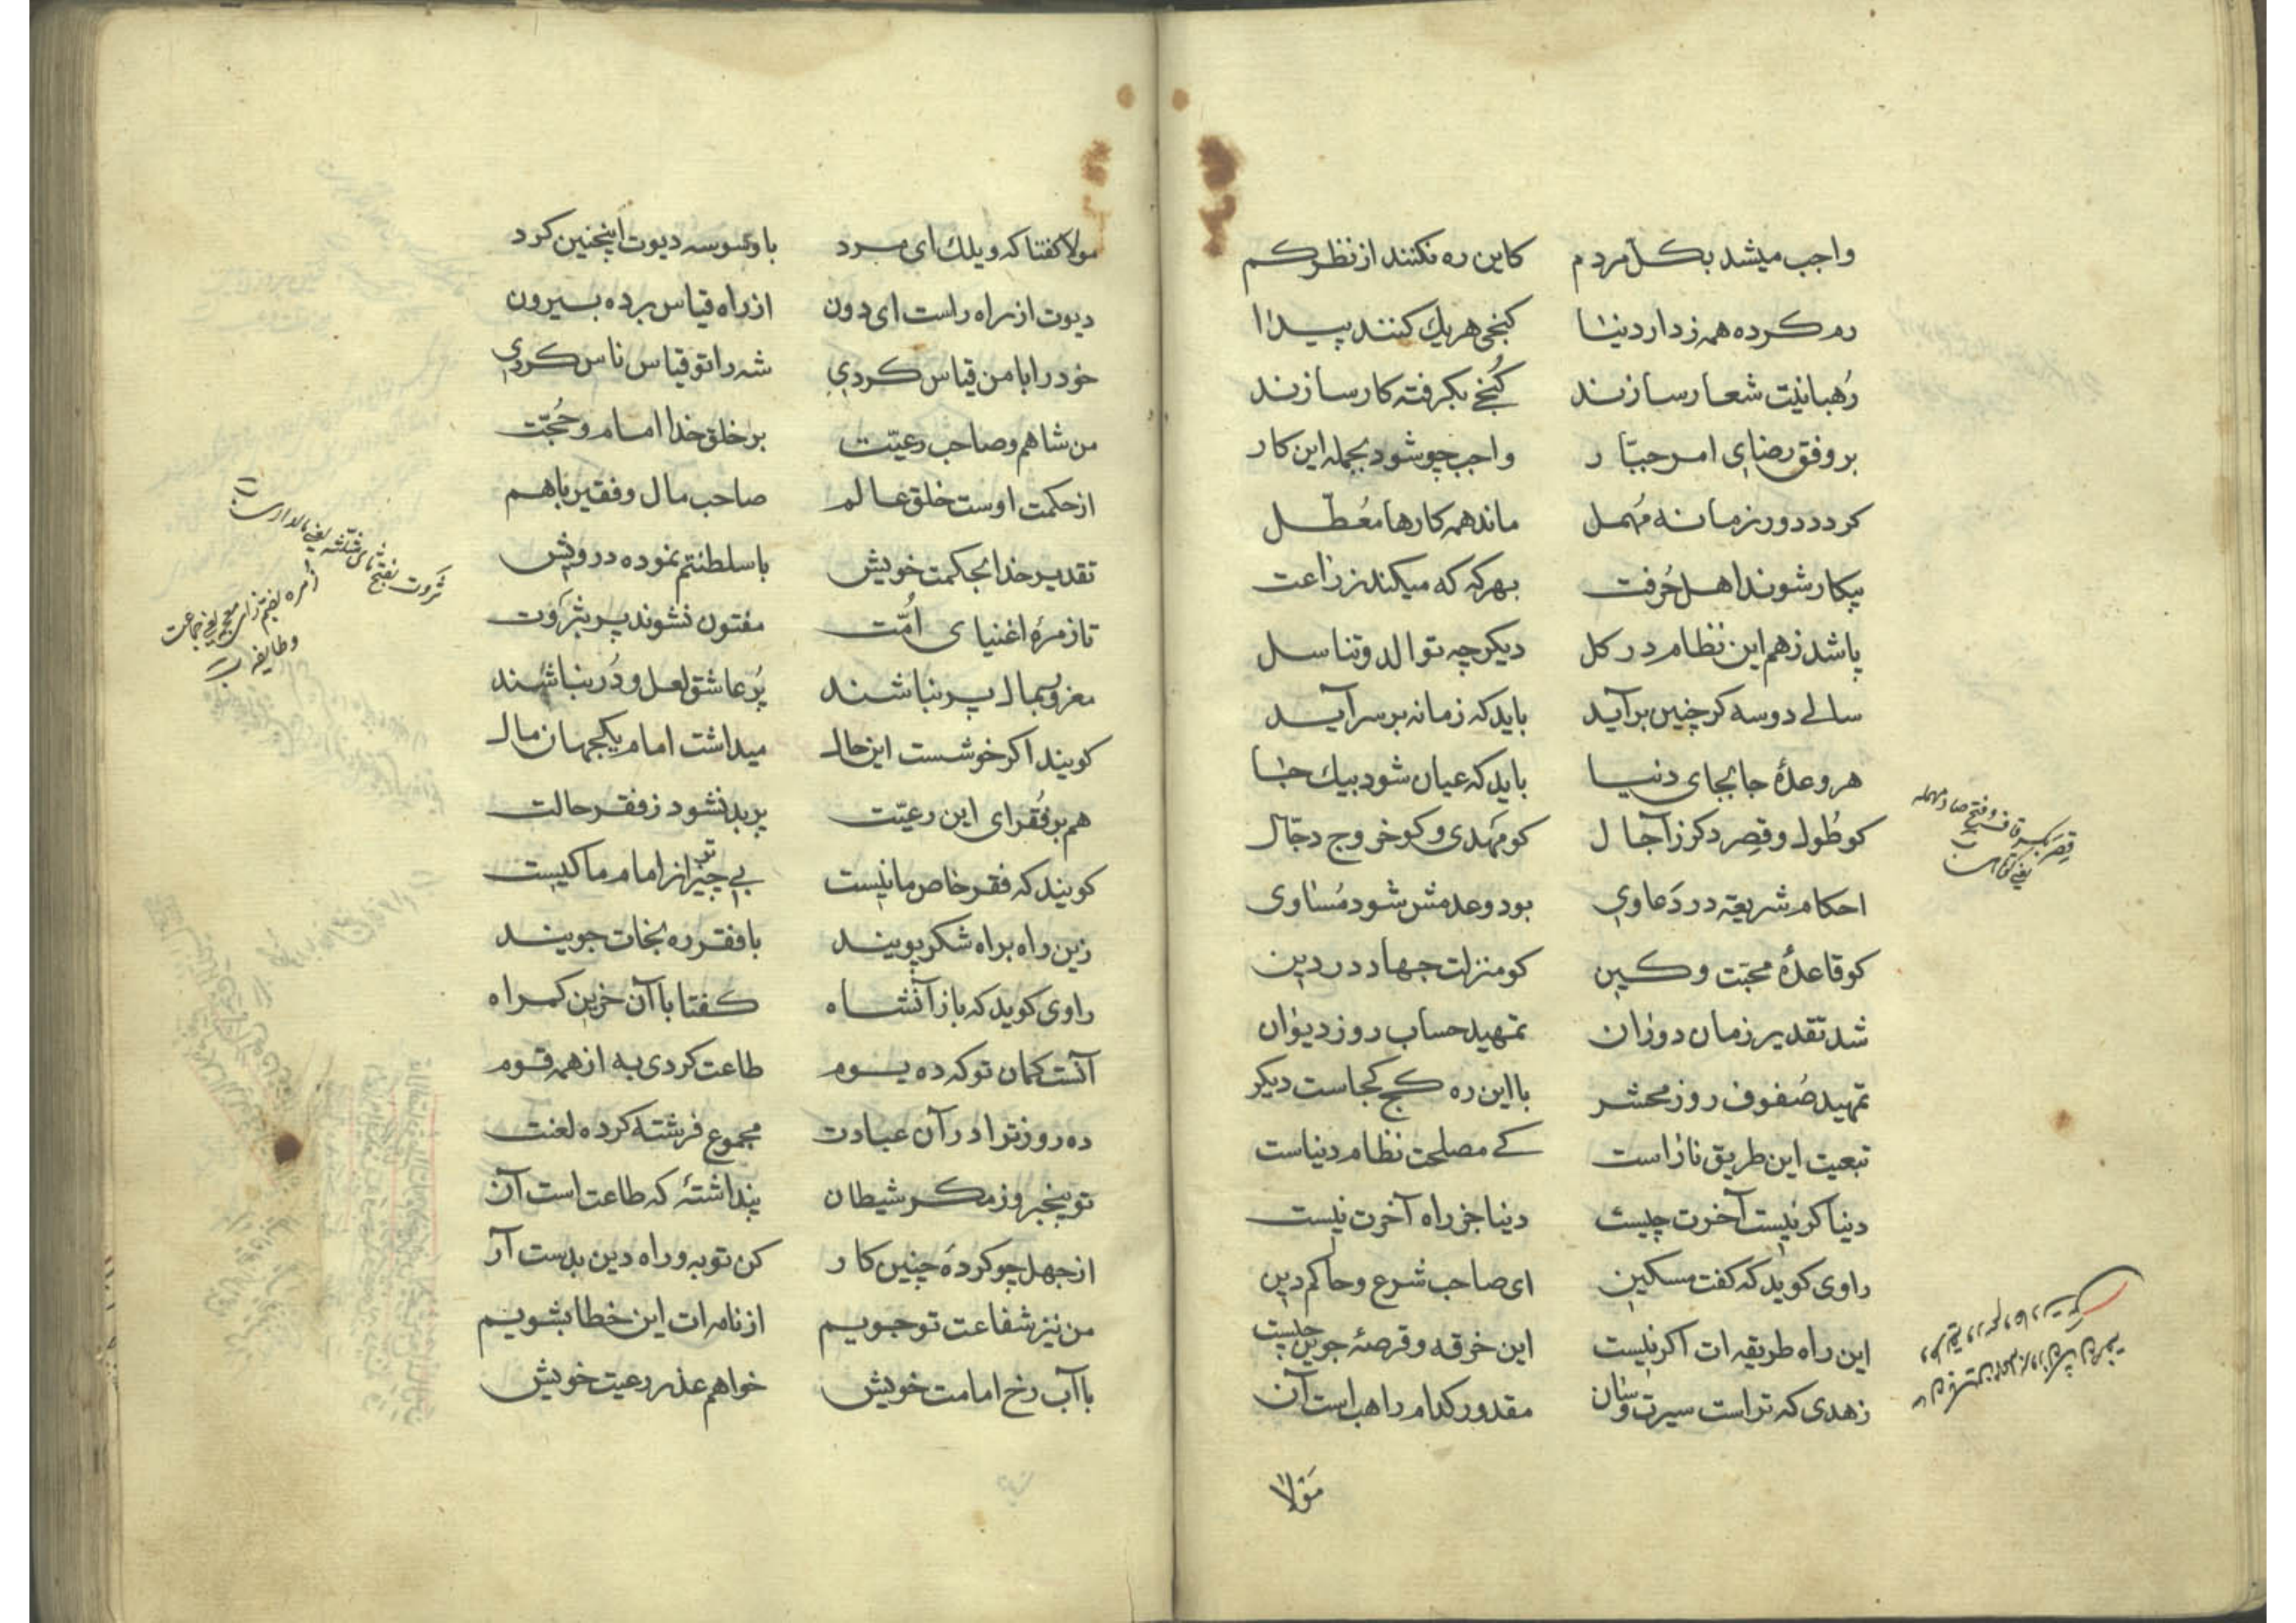 واجب میشد بکل مردم کاین ره نکنند از نظر کم
رم کرده همه ز دار دنیا کنجی هریك کنند پیدا
رُهبانیت شعار سازند کُنجی بکرفته کار سازند
بر وفق رضای امر جبّار واجب چو شود بجمله این کار
کردد دور زمانه مُهمل ماند همه کارها معُطّل
بیکار شوند اهل حُرفت بهر که که میکند زراعت
پاشد ز هم این نظام در کل دیکر چه توالد و تناسل
سالی دو سه کر چنین برآید باید که زمانه بر سر آید
هر وعدهٔ جابجای دنیا باید که عیان شود بیك جا
کو طُول و قِصر دکر ز آجال کو مَهدی و کو خروج دجّال
احکام شریعة در دَعاوی بود و عدمش شود مُساوی
کو قاعدهٔ محبّت و کین کو منزلت جهاد در دین
شد تقدیر زمان دوران تمهید حساب روز دیوان
تمهید صُفوف روز محشر با این ره کج کجاست دیکر
تبعیت این طریق ناراست کی مصلحت نظام دنیاست
دنیا کر نیست آخرت چیست دنیا جز راه آخرت نیست
راوی کوید که کفت مسکین ای صاحب شرع و حاکم دین
این راه طریقه ات اکر نیست این خرقه و قرصهٔ جوین چیست
زهدی که تراست سیرت و سان مقدور کدام راهب است آن
مَولا
قِصَر بکسر قاف و فتح صاد مهمله
یعنی کوتاهی
مولا کفتا که ویلك ای مرد با وسوسه دیوت اینچنین کرد
دیوت از راه راست ای دون از راه قیاس برده بیرون
خود را با من قیاس کردی شه را تو قیاس ناس کردی
من شاهم و صاحب رعیّت بر خلق خدا امام و حُجّت
از حکمت اوست خلق عالم صاحب مال و فقیر با هم
تقدیر خدا بحکمت خویش با سلطنتم نموده درویش
تا زمرهٔ اغنیای اُمّت مفتون نشوند پر بثَروت
مغرور بمال پر نباشند پُر عاشق لعل و دُر نباشند
کویند اکر خوشست این حال میداشت امام یکجهان مال
هم بر فُقرای این رعیّت پر بد نشود ز فقر حالت
کویند که فقر خاص ما نیست بی چیز تر از امام ما کیست
زین راه براه شکر پویند با فقر ره نجات جویند
راوی کوید که باز آنشاه کفتا با آن حزین کمراه
آنست کمان تو که ده یوم طاعت کردی به از همه قوم
ده روز ترا در آن عبادت مجموع فرشته کرده لعنت
تو بیخبر و ز مکر شیطان پنداشتهٔ که طاعت است آن
از جهل چو کردهٔ چنین کار کن توبه و راه دین بدست آر
من نیز شفاعت تو جویم از نامه ات این خطا بشویم
با آب رخ امامت خویش خواهم عذر رعیت خویش
ثَروت بفتح ثای مثلثه یعنی مالداری
زُمره بضم زای معجمه یعنی جماعت
و طایفه